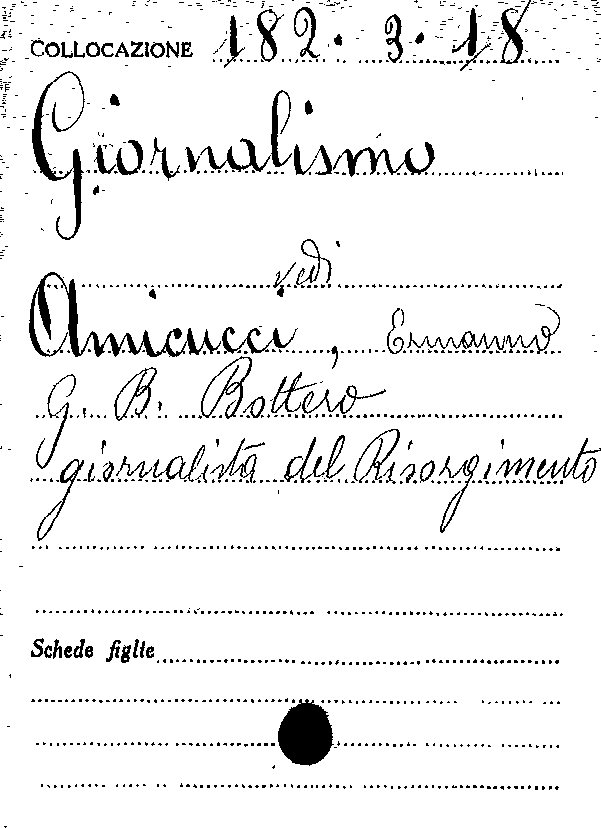 COLLOCAZIONE 182.3.18
Giornalismo
vedi
Amicucci, Ermanno
G. B. Bottero
giornalista del Risorgimento
Schede figlie